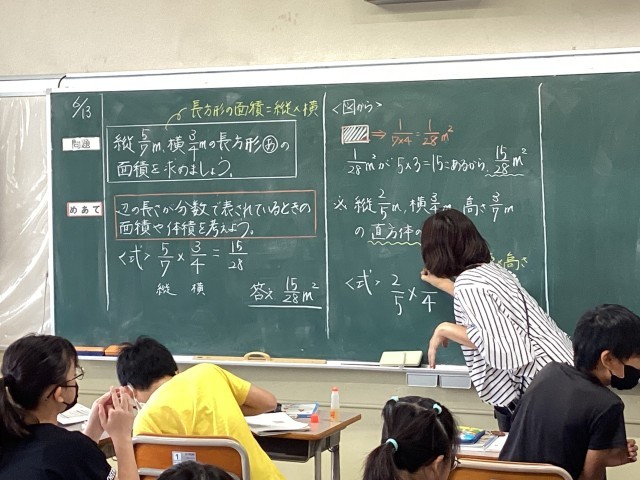 6/13
長方形の面積=縦×横
問題
縦5/7m、横3/4mの長方形あの
面積を求めましょう。
めあて
辺の長さが分数で表されているときの
面積や体積を考えよう。
<式> 5/7 × 3/4 = 15/28
縦 横
答え 15/28 m²
<図から>
⇒ 1/7×4 = 1/28 m²
1/28 m²が 5×3=15こあるから、15/28 m²
※ 縦2/5m、横3/4m、高さ3/7m
の直方体の
高さ
<式> 2/5 × 4
1